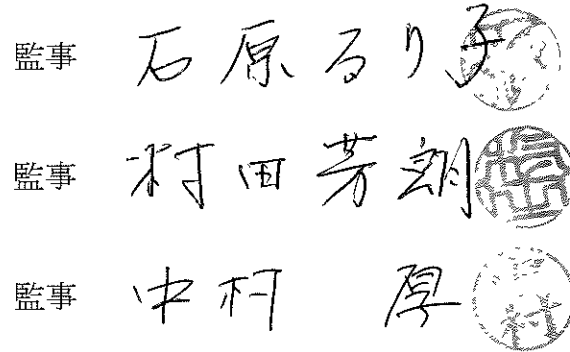 監事 石原るり子
監事 村田芳朗
監事 中村 厚